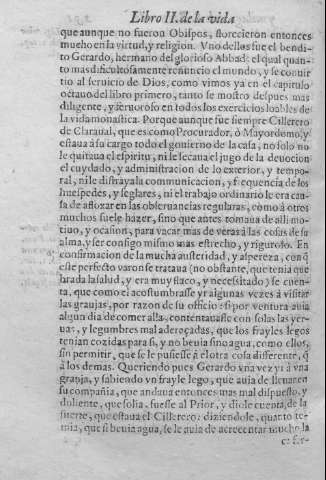 Libro II. de la vida
que aunque no fueron Obispos, florecieron entonces
mucho en la virtud, y religion. Vno dellos fue el bendi-
to Gerardo, hermano del glorioso Abbad: el qual quan-
to mas dificultosamente renuncio el mundo, y se conuir
tio al seruicio de Dios, como vimos ya en el capitulo
octauo del libro primero, tanto se mostro despues mas
diligente, y feruoroso en todos los exercicios loables de
la vida monastica. Porque aunque fue siempre Cillerero
de Claraual, que es como Procurador, ò Mayordomo, y
estaua à su cargo todo el gouierno de la casa, no solo no
le quitaua el espiritu, ni le secaua el jugo de la deuocion
el cuydado, y administracion de lo exterior, y tempo-
ral, ni le distrayala communicacion, y frequencia de los
huespedes, y seglares, ni el trabajo ordinario le era cau-
sa de afloxar en las obseruancias regulares, como à otros
muchos suele hazer, sino que antes tomaua de alli mo-
tiuo, y ocasion, para vacar mas de veras à las cosas de su
alma, y ser consigo mismo mas estrecho, y riguroso. En
confirmacion de la mucha austeridad, y alpereza, con q̃
este perfecto varon se trataua (no obstante, que tenia que
brada la salud, y era muy flaco, y necessitado) se cuen-
ta, que como el acostumbrasse yr algunas vezes à visitar
las granjas, por razon de su officio: si por ventura auia
algun dia de comer alla, contentauasse con solas las ver-
uas, y legumbres mal adereçadas, que los frayles legos
tenian cozidas para si, y no beuia sino agua, como ellos,
sin permitir, que se le pusiesse à el otra cosa differente, q̃
à los demas. Queriendo pues Gerardo vna vez yr à vna
granja, y sabiendo vn frayle lego, que auia de lleuar en
su compañia, que andaua entonces mas mal dispuesto, y
doliente, que solia, fuesse al Prior, y diole cuenta, de la
suerte, que estaua el Cillerero: diziendole, quanto te-
mia, que si beuia agua, se le auia de acrecentar mucho la